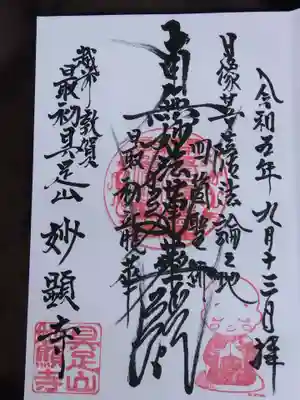 令和五年九月十三日 拝
日像菩薩法論之地
四箇聖跡
南無妙法蓮華経
最初
越前敦賀
最初具足山 妙顕寺
具足山
妙顯寺